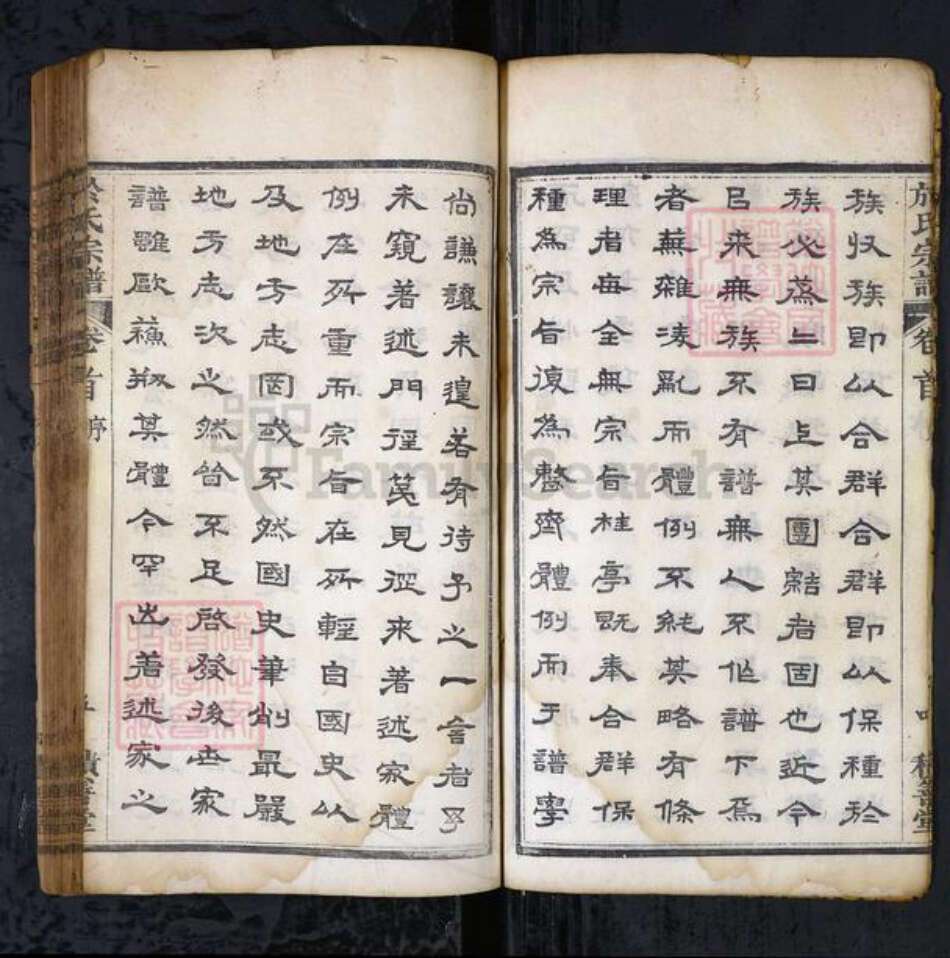 族收族即以合群合群即以保種於
族必蒸上曰上其團結者固也近今
㠯來無族不有譜無人不作譜下焉
者蕪雜淩亂而體例不純其略有條
理者毎全無宗旨桂亭既奉合群保
種為宗旨復為整齊體例而于譜學
於氏宗譜
卷首
尚謙讓未遑若有待予之一言者予
未窺著述門徑莫見從來著述家體
例在所重而宗旨在所輕自國史以
及地方志罔或不然國史筆削最嚴
地方志次之然皆不足啓發後世家
譜雖歐蘇剏其體今罕出著述家之
於氏宗譜
卷首
序
FamilySearch